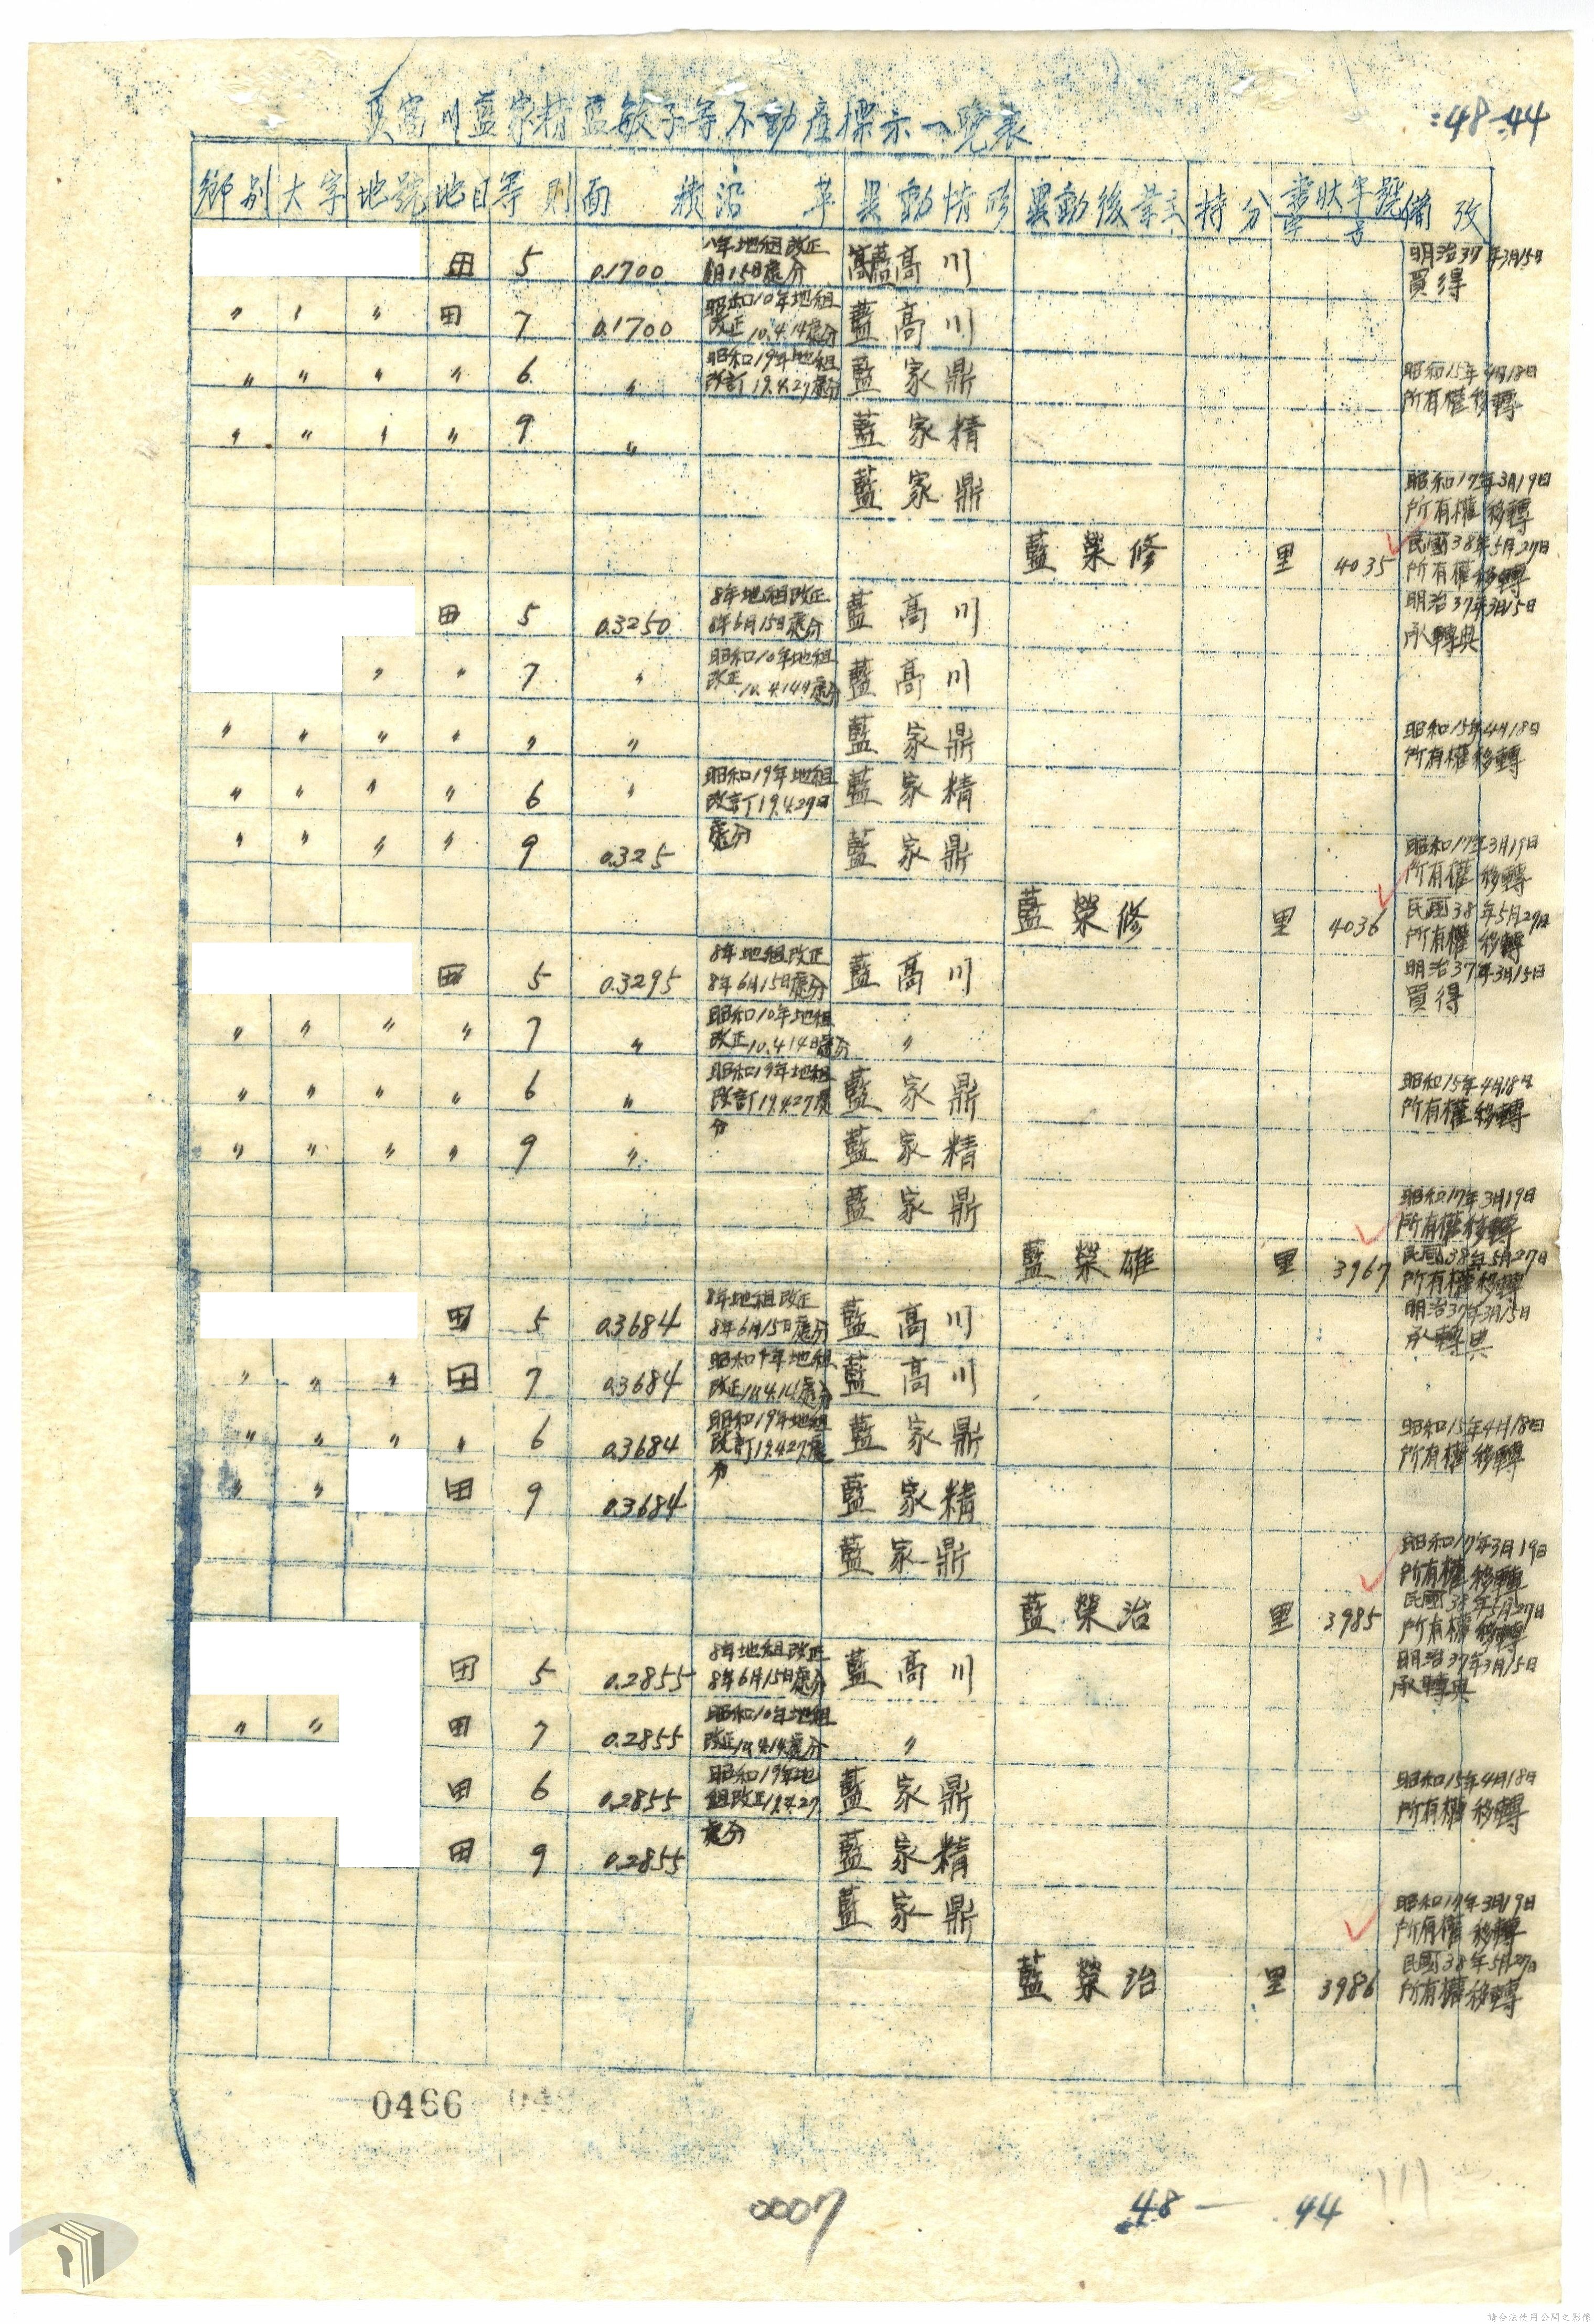 藍高川藍家精藍敏子等不動產標示一覽表
:48-44
鄉別 大字 地號 地目 等則 面積 沿革 異動情形 異動後業主 持分 書狀字號 字 号 備攷
田 5 0.1700 八年地租改正 6月15日處分 藍高川 明治37年3月15日 買得
〃 〃 〃 田 7 0.1700 昭和10年地租改正10.4.14處分 藍高川
〃 〃 〃 〃 6 〃 昭和19年地租改訂19.4.27處分 藍家鼎 昭和15年4月18日 所有權移轉
〃 〃 〃 〃 9 〃 藍家精
藍家鼎 昭和17年3月19日 所有權移轉
藍榮修 里 4035 民國38年5月27日 所有權移轉
田 5 0.3250 8年地租改正 8年6月15日處分 藍高川 明治37年3月15日 承轉典
〃 〃 7 〃 昭和10年地租改正10.4.14日處分 藍高川
〃 〃 〃 〃 〃 〃 藍家鼎 昭和15年4月18日 所有權移轉
〃 〃 〃 〃 6 〃 昭和19年地租改訂19.4.27日處分 藍家精
〃 〃 〃 〃 9 0.325 藍家鼎 昭和17年3月19日 所有權移轉
藍榮修 里 4036 民國38年5月27日 所有權移轉
田 5 0.3295 8年地租改正 8年6月15日處分 藍高川 明治37年3月15日 買得
〃 〃 〃 〃 7 〃 昭和10年地租改正10.4.14日處分 〃
〃 〃 〃 〃 6 〃 昭和19年地租改訂19.4.27處分 藍家鼎 昭和15年4月18日 所有權移轉
〃 〃 〃 〃 9 〃 藍家精
藍家鼎 昭和17年3月19日 所有權移轉
藍榮雄 里 3967 民國38年5月27日 所有權移轉
田 5 0.3684 8年地租改正 8年6月15日處分 藍高川 明治37年3月15日 承轉典
〃 〃 〃 田 7 0.3684 昭和十年地租改正10.4.14處分 藍高川
〃 〃 〃 〃 6 0.3684 昭和19年地租改訂19.4.27處分 藍家鼎 昭和15年4月18日 所有權移轉
〃 〃 田 9 0.3684 藍家精
藍家鼎 昭和17年3月19日 所有權移轉
藍榮治 里 3985 民國38年5月27日 所有權移轉
田 5 0.2855 8年地租改正 8年6月15日處分 藍高川 明治37年3月15日 承轉典
〃 〃 田 7 0.2855 昭和10年地租改正10.4.14處分 〃
田 6 0.2855 昭和19年地租改正19.4.27處分 藍家鼎 昭和15年4月18日 所有權移轉
田 9 0.2855 藍家精
藍家鼎 昭和17年3月19日 所有權移轉
藍榮治 里 3986 民國38年5月27日 所有權移轉
0466
0007
48— 44
請合法使用公開之影像